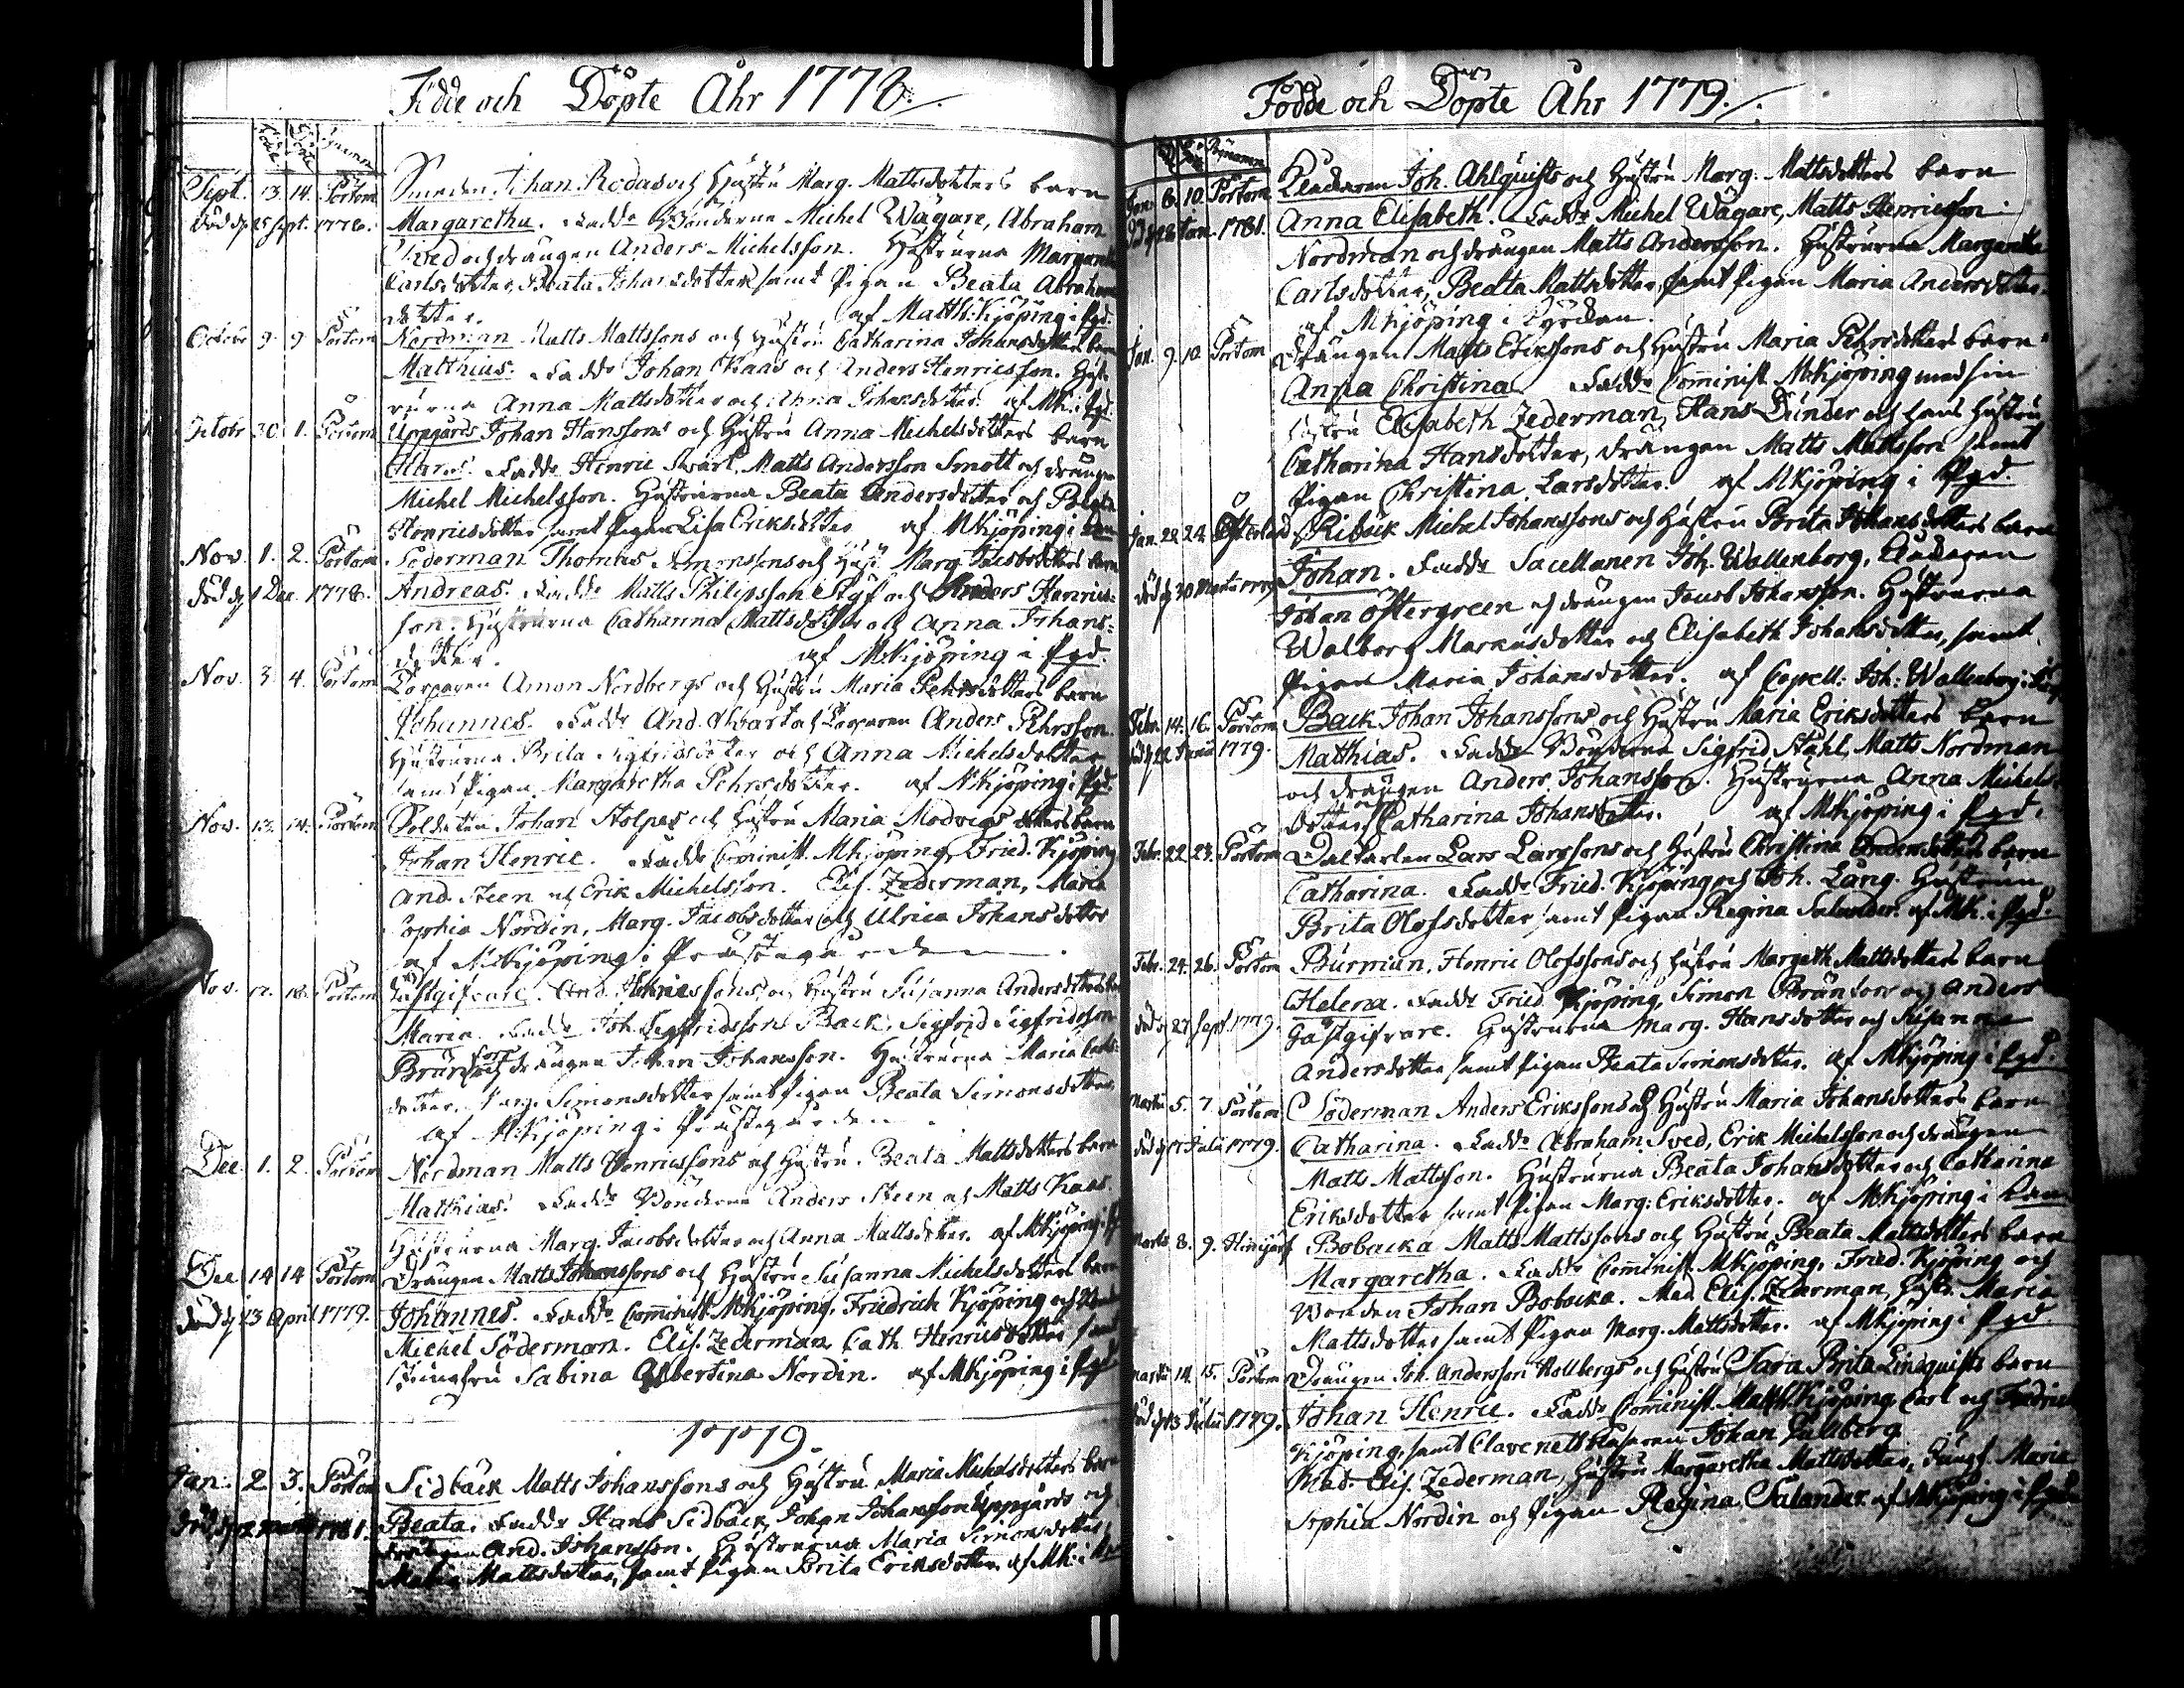 Födde och Döpte Åhr 1778.
Födde Döpte Bynamn
Sept. 13. 14. Pörtom Smeden Johan Rodas och Hustru Marg. Mattsdotters barn
död d. 25 Sept. 1778. Margaretha. Fadd. Bönderne Michel Wägare, Abraham
Sved och drängen Anders Michelsson. Hustrurna Margaretha
Carlsdotter, Beata Johansdotter samt Pigan Beata Abrahams
dotter. af Matth. Kjöping i Pgd.
Octobr 9. 9. Pörtom Nordman Matts Mattssons och Hustru Catharina Johansdotters barn
Matthias. Fadd. Johan Kaas och Anders Henricsson. Hust-
rurna Anna Mattsdotter och Anna Johansdotter. af MK. i Pgd.
Octobr 30. 1. Pörtom Uppgårds Johan Hanssons och Hustru Anna Michelsdotters barn
Hans. Fadd. Henric Svart, Matts Andersson Smått och drängen
Michel Michelsson. Hustrurna Beata Andersdotter och Beata
Henricsdotter samt Pigan Lisa Eriksdotter af MKjöping i
Nov. 1. 2. Pörtom Söderman Thomas Simonssons och Hust. Marg. Jacobsdotters barn
död d. 1 Dec. 1778. Andreas. Fadd. Matts Philipsson Rÿf och Anders Henrics-
son. Hustrurna Catharina Mattsdotter och Anna Johans-
dotter. af M.Kjöping i Pgd.
Nov. 3. 4. Pörtom Torparen Simon Nordbergs och Hustru Maria Pehrsdotters barn
Johannes. Fadd. And. Svart och Torparen Anders Pehrsson.
Hustrurna Brita Sigfridsdotter och Anna Michelsdotter
samt Pigan Margaretha Pehrsdotter. af MKjöping i Pgd.
Nov. 13. 14. Pörtom Soldaten Johan Stolpes och Hustru Maria Modvigs dotters barn
Johan Henric. Fadd. Cominist. MKjöping, Fried. Kjöping
And. Steen och Erik Michelsson. Elis. Zederman, Maria
Sophia Nordin, Marg. Jacobsdotter och Ulrica Johansdotter
af MKjöping i Prästegården.
Nov. 17. 18. Pörtom Gästgifvare And. Henricssons och Hustru Susanna Andersdotters barn
Maria. Fadd. Joh. Sigfridsson Back, Sigfrid Sigfridsson
Brunsow och drängen Johan Johansson. Hustrurna Maria Carls-
dotter, Marg. Simonsdotter samt Pigan Beata Simonsdotter
af M:Kjöping i Prästegården.
Dec. 1. 2. Pörtom Nordman Matts Henricssons och Hustru Beata Mattsdotters barn
Mathias. Fadd. Bönderna Anders Steen och Matts Kaas.
Hustrurna Marg. Jacobsdotter och Anna Mattsdotter. af MKjöping i Pgd
Dec 14 14 Pörtom Drängen Matts Johanssons och Hustru Susanna Michelsdotters barn
död d. 13 April 1779. Johannes. Fadd. Cominist. MKjöping, Friedrich Kjöping och
Michel Söderman. Elis. Zederman, Cath. Henricsdotter samt
Jungfru Sabina Albertina Nordin. af MKjöping i Pgd
1779.
Jan. 2. 3. Pörtom Sidbäck Matts Johanssons och Hustru Maria Michelsdotters barn
död d. 1781. Beata. Fadd. Hans Sidbäck, Johan Johansson Uppgårds och
drängen And. Johansson. Hustrurna Maria Simonsdotter,
Maria Mattsdotter, samt Pigan Brita Eriksdotter. af MK: i
Födde och Döpte Åhr 1779.
Bynamn
Jan. 6. 10. Pörtom Klockaren Joh. Ahlquists och Hustru Marg. Mattsdotters barn
Jan. 1781. Anna Elisabeth. Fadd. Michel Wägare, Matts Henricsson
Nordman och drängen Matts Andersson. Hustrurna Margaretha
Carlsdotter, Beata Mattsdotter, samt Pigan Maria Andersdotter.
af MKjöping i Kyrckan.
Jan. 9. 10. Pörtom Drängen Matts Erikssons och Hustru Maria Pehrsdotters barn
Anna Christina. Fadd. Cominist. MKjöping med sin
hustru Elisabeth Zederman, Hans Dunder och hans hustru
Catharina Hansdotter, drängen Matts Mattsson samt
Pigan Christina Larsdotter. af MKjöping i Pgd.
Jan. 22 24. Österland Ribäck Michel Johanssons och Hustru Brita Johansdotters barn
död d. 30 Martii 1779. Johan. Fadd. Sacellanen Joh. Wallenborg, Klockaren
Johan Östergreen och drängen Jacob Johansson. Hustrurna
Walborg Marcusdotter och Elisabeth Johansdotter, samt
Pigan Maria Johansdotter. af Capell: Joh: Wallenborg i
Febr. 14. 16. Pörtom Back Johan Johanssons och Hustru Maria Eriksdotters barn
död d. 22 Junii 1779. Matthias. Fadd. Bönderna Sigfrid Ståhl, Matts Nordman
och drängen Anders Johansson. Hustrurna Anna Michels-
dotter, Catharina Johansdotter. af MKjöping i Pgd.
Febr. 22 23. Pörtom Dalkarlen Lars Larssons och Hustru Christina Andersdotters barn
Catharina. Fadd. Fried. Kjöping och Joh. Lång. Hustrun
Brita Olofsdotter samt Pigan Regina Salander. af MK. i Pgd.
Febr. 24. 26. Pörtom Burman, Henric Olofssons och Hustru Margeth Mattsdotters barn
Helena. Fadd. Fried. Kjöping, Simon Brunsow och Anders
död d. 27 Sept. 1779. Gästgifvare. Hustrurna Marg. Hansdotter och Susanna
Andersdotter samt Pigan Beata Simonsdotter. af MKjöping i Pgd.
Martii 5. 7. Pörtom Söderman Anders Erikssons och Hustru Maria Johansdotters barn
död d. 17 Julii 1779. Catharina. Fadd. Abraham Sved, Erik Michelsson och drängen
Matts Mattsson. Hustrurna Beata Johansdotter och Catharina
Eriksdotter samt Pigan Marg: Eriksdotter. af MKjöping i
Martii 8. 9. Hinnjärf Bobacka Matts Mattssons och Hustru Beata Mattsdotters barn
Margaretha. Fadd. Cominist. MKjöping, Fried. Kjöping och
Bonden Johan Bobacka. Mad. Elis. Zederman, Hustr. Maria
Mattsdotter samt Pigan Marg. Mattsdotter. af MKjöping i Pgd.
Martii 14. 15. Pörtom Drängen Joh. Andersson Hollbergs och Hustru Sara Brita Lindquists barn
död d. 13 Julii 1779. Johan Henric. Fadd. Cominist. Matth. Kjöping, Carl och Fredric
Kjöping, samt Clavenetts Johan
Mad. Elis. Zederman, Hustru Margaretha Mattsdotter, Jungf. Maria
Sophia Nordin och Pigan Regina Salander. af MKjöping i Pgd.